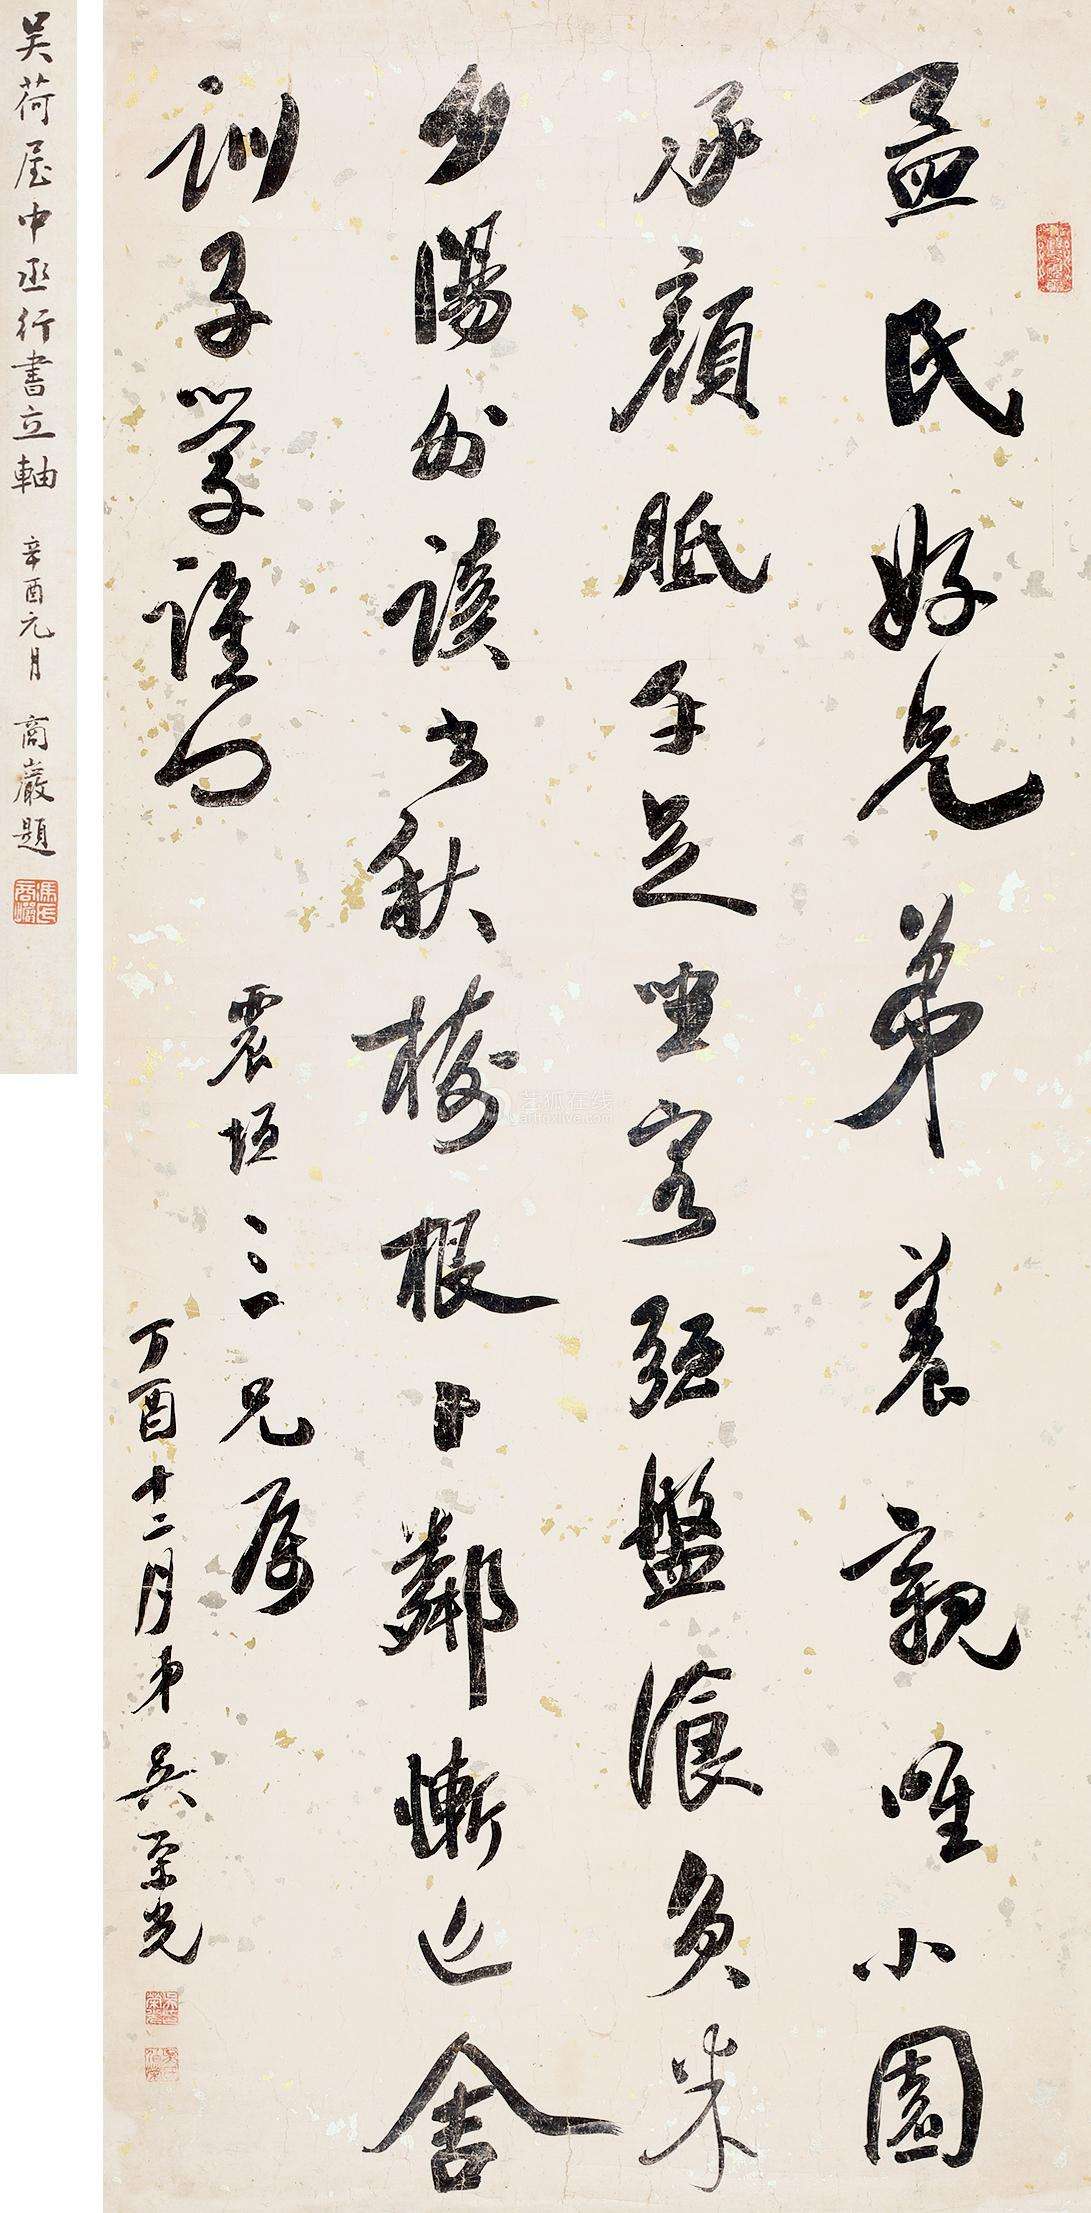 孟氏好兄弟養親唯小園
承顏胝手足坐客强盤湌負米
夕陽外讀書秋樹根卜鄰慚近舍
訓子學誰門
震垣三兄屬
丁酉十二月弟吳榮光
吴荷屋中丞行書立軸 辛酉元月 商巖題
艺狐在线
artfoxlive.com